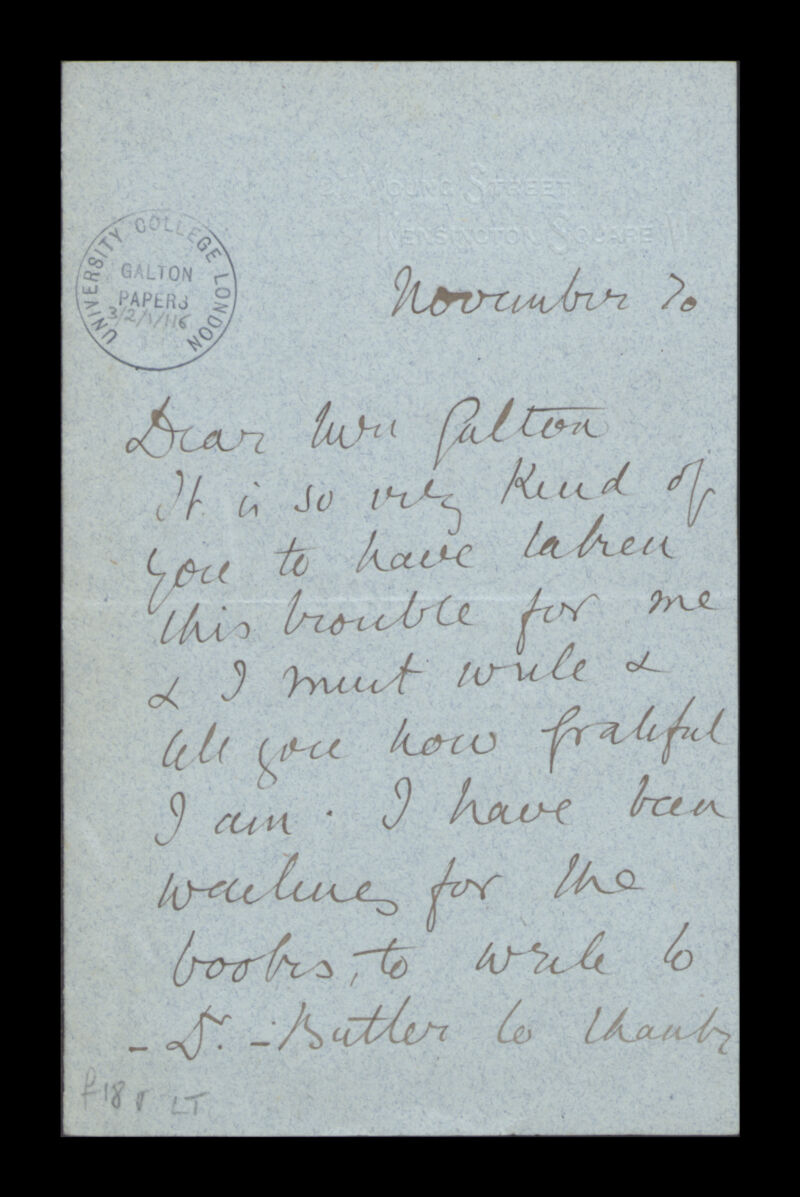 Young Street
Kensington Square W
UNIVERSITY COLLEGE LONDON
GALTON
PAPERS
3/2/1/1/6
November 20
Dear Mrs Galton
It is so very kind of
you to have taken
this trouble for me
& I must write &
tell you how grateful
I am. I have been
waiting for the
books, to write to
- Dr. - Butler to thank
f18r LT